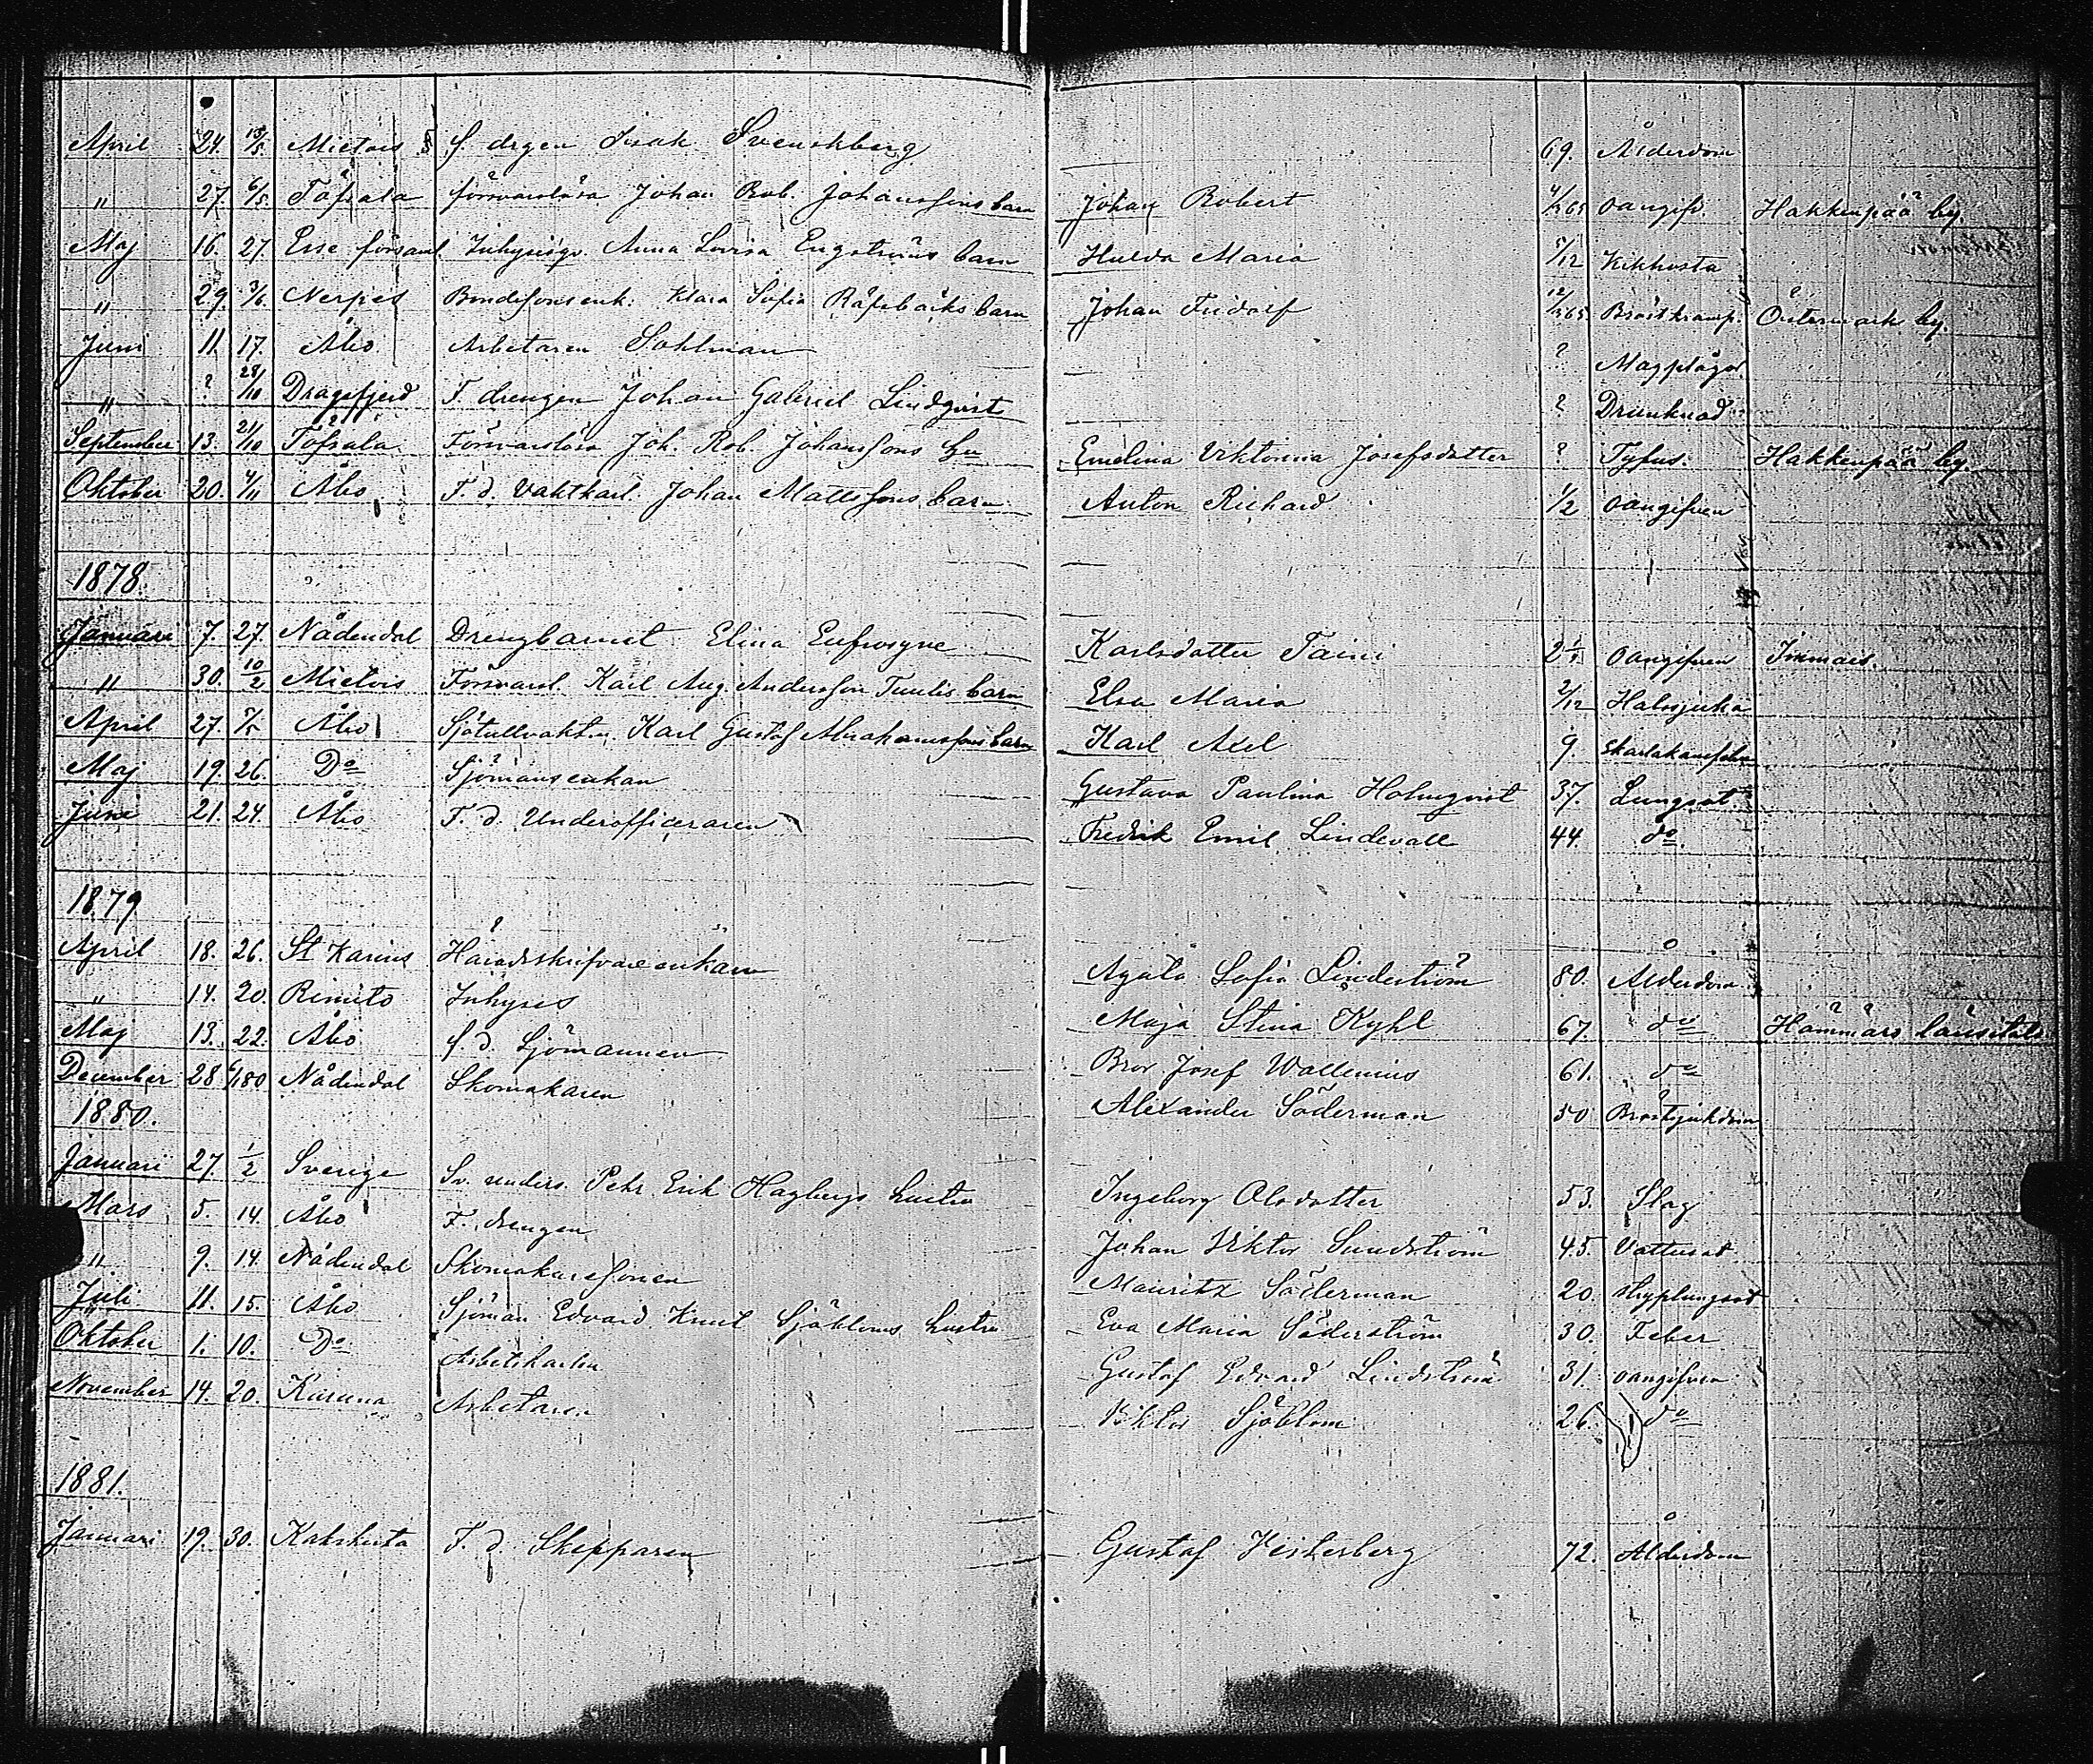 April 24. 15/5. Mietois f. drgen Isak Svenskberg 69. Ålderdom
" 27. 6/5. Töfsala försvarslösa Johan Rob. Johanssons barn Johan Robert 4/365 oangifv. Hakkenpää by.
Maj 16. 27. Esse församl. Inhysesqv. Anna Lovisa Engströms barn Hulda Maria 5/12 Kikhosta
" 29. 3/6. Nerpes Bondesonsenk. Klara Sofia Råfsbäcks barn Johan Fridolf 12/365 Bröstkramp. Östermark by.
Juni 11. 17. Åbo Arbetaren Sohlman ? Magplågor
" ? 28/10 Dragsfjerd F. drengen Johan Gabriel Lindqvist ? Drunknad
September 13. 21/10 Töfsala Försvarslösa Joh. Rob. Johanssons hu Emelina Viktorina Josefsdotter ? Tyfus. Hakkenpää by.
Oktober 20. 4/11 Åbo F. d. Vaktkarl. Johan Mattssons barn Anton Richard 1/2 oangifven
1878.
Januari 7. 27. Nådendal Drengbarnet Elina Eufrosyne Karlsdotter Taimi 2 oangifven Immais.
" 30. 10/2 Mietois Försvarsl. Karl Aug. Andersson Tuulis barn Elsa Maria 2/12 Halssjuka
April 27. 5/5 Åbo Sjötullvakten Karl Gustaf Abrahamssons barn Karl Axel 9. Skarlakansfeber
Maj 19. 26. Do Sjömansenkan Gustava Paulina Holmqvist 37. Lungsot
Juni 21. 24. Åbo F. d. Underofficeraren Fredrik Emil Lindevall 44. do.
1879
April 18. 26. St Karins Häradsskrifvareenkan Agata Sofia Lindeström 80. Ålderdom
" 14. 20. Rimito Inhyses Maja Stina Kyhl 67. do Hämmärö
Maj 13. 22. Åbo f. d. Sjömannen Bror Josef Wallenius 61. do
December 28 6/1 80 Nådendal Skomakaren Alexander Söderman 50 Bröstsjukdom
1880.
Januari 27. 1/2 Sverige Sv. unders. Pehr Erik Hagbergs hustru Ingeborg Olsdotter 53. Slag
Mars 5. 14. Åbo F. drengen Johan Viktor Sundström 45. Vattusot
" 9. 14. Nådendal Skomakaresonen Mauritz Söderman 20. Hryplungsot
Juli 11. 15. Åbo Sjöman Edvard Knut Sjöbloms hustru Eva Maria Söderström 30. Feber
Oktober 1. 10. Do Arbetskarlen Gustaf Edvard Lindström 31. oangifven
November 14. 20. Karuna Arbetaren Viktor Sjöblom 26. do
1881.
Januari 19. 30. Kakskerta F. d. Skepparen Gustaf Vesterberg 72. Ålderdom